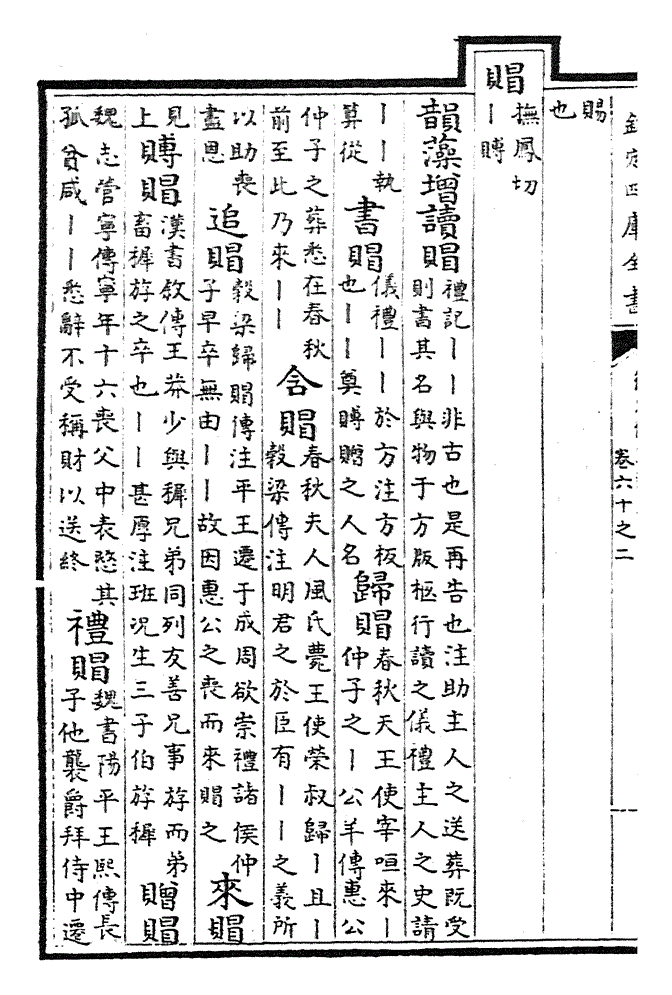 欽定四庫全書 卷六十之二
賜
也
賵 撫鳳切
丨賻
韻藻增讀賵 禮記丨丨非古也是再告也注助主人之送葬既受
則書其名與物于方版柩行讀之儀禮主人之史請
丨丨執
算從
書賵 儀禮丨丨於方注方板
也丨丨奠賻贈之人名
歸賵 春秋天王使宰咺來丨
仲子之丨公羊傳惠公
仲子之葬悉在春秋
前至此乃來丨丨
含賵 春秋夫人風氏薨王使榮叔歸丨且丨
榖梁傳注明君之於臣有丨丨之義所
以助喪
盡恩
追賵 榖梁歸賵傳注平王遷于成周欲崇禮諸侯仲
子早卒無由丨丨故因惠公之喪而來賵之
來賵
見
上
賻賵 漢書敘傳王莽少與穉兄弟同列友善兄事斿而弟
畜穉斿之卒也丨丨甚厚注班况生三子伯斿穉
贈賵
魏志管寧傳寧年十六喪父中表愍其
孤貧咸丨丨悉辭不受稱財以送終
禮賵 魏書陽平王熙傳長
子他襲爵拜侍中遷